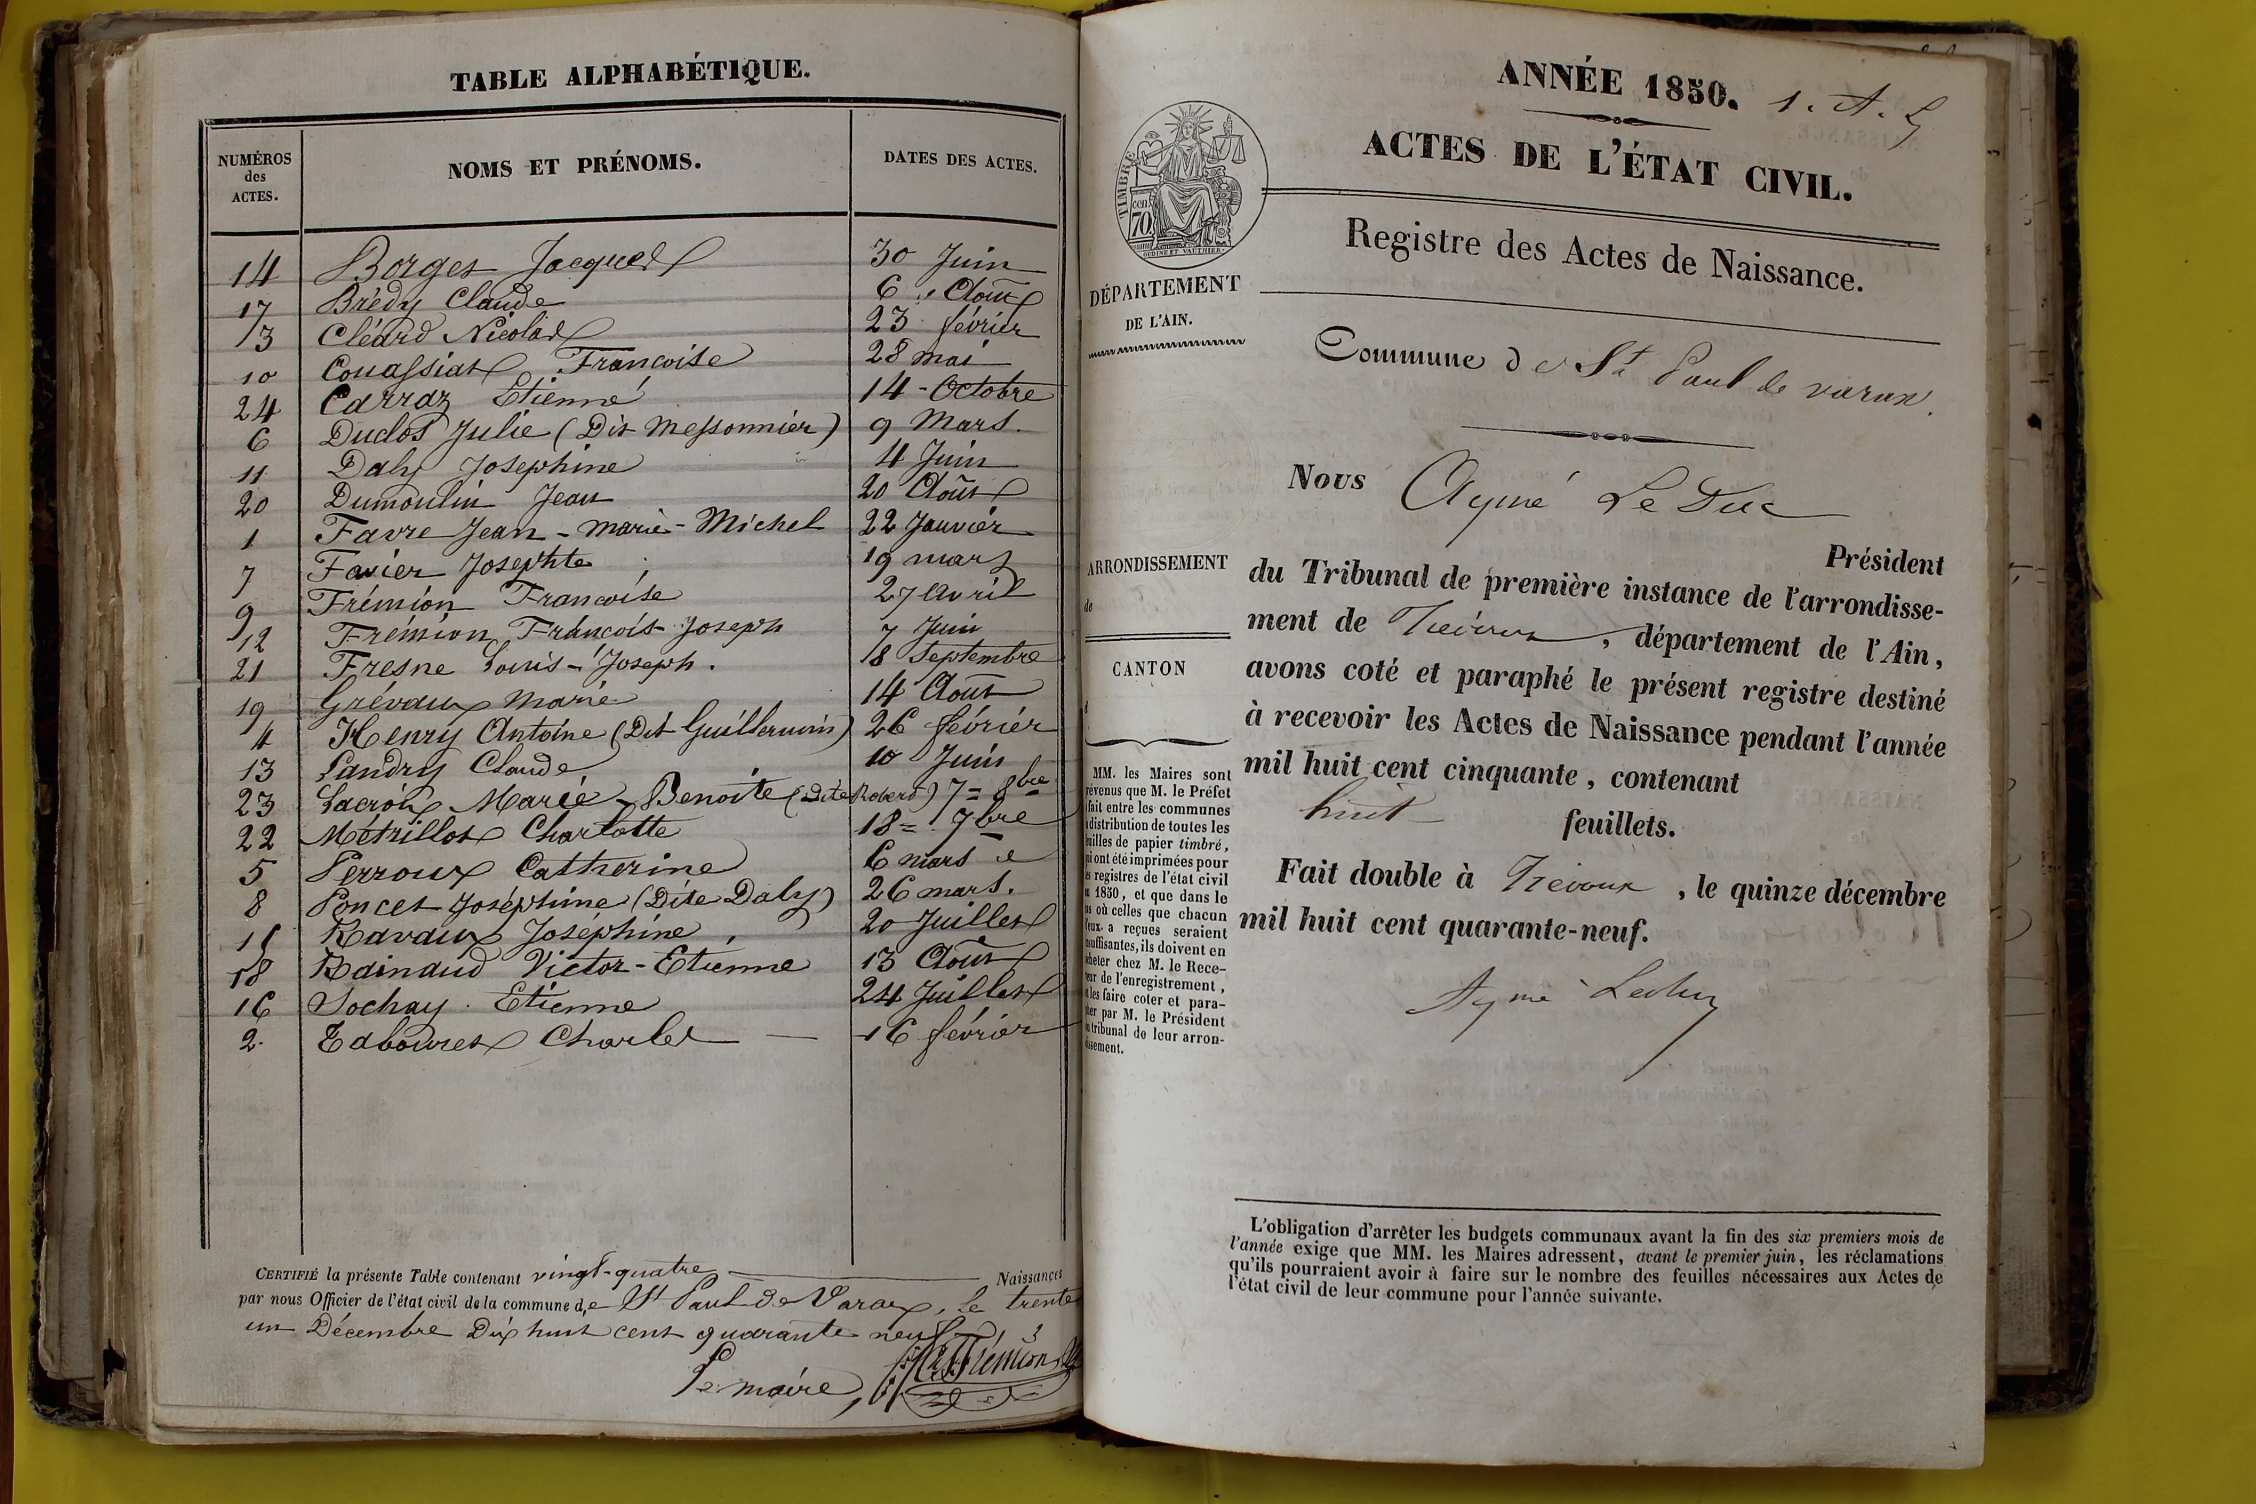 TABLE ALPHABÉTIQUE.
NUMÉROS des ACTES. NOMS ET PRÉNOMS. DATES DES ACTES.
14 Borges Jacques 30 Juin
17 Brédy Claude 6 Août
3 Cléard Nicolas 23 février
10 Couassiat Françoise 28 mai
24 Carraz Etienne 14 - Octobre
6 Duclos Julie (Dit Messonnier) 9 Mars.
11 Daly Josephine 4 Juin
20 Dumoulin Jean 20 Août
1 Favre Jean - Marie - Michel 22 Janvier
7 Favier Josephte 19 mars
9 Frémion Françoise 27 avril
12 Frémion François Joseph 7 Juin
21 Fresne Louis - Joseph. 8 Septembre
19 Grévaux Marie 14 Août
4 Henry Antoine (Dit Guillermin) 26 février
13 Landry Claude 10 Juin
23 Lacroix Marie Benoite (Dite Robert) 7 = 8bre
22 Métrillot Charlotte 18 = 7bre
5 Perroux Catherine 6 mars
8 Poncet Joséphine (Dite Daly) 26 mars.
15 Ravaux Joséphine 20 Juillet
18 Rainaud Victor - Etienne 13 Août
16 Sochay Etienne 24 Juillet
2. Tabouret Charles 16 février
CERTIFIÉ la présente Table contenant vingt-quatre Naissances
par nous Officier de l'état civil de la commune de St Paul De Varax, le trente
un Décembre Dix huit cent quarante neuf
Le maire, Frémion
ANNÉE 1850. 1. A. L
ACTES DE L'ÉTAT CIVIL.
Registre des Actes de Naissance.
TIMBRE
cen. 70
OUDINE ET VAUTHIER
DÉPARTEMENT
DE L'AIN.
Commune de St Paul de varax.
Nous Aymé Le Duc
Président
du Tribunal de première instance de l'arrondisse-
ment de Trévoux, département de l'Ain,
avons coté et paraphé le présent registre destiné
à recevoir les Actes de Naissance pendant l'année
mil huit cent cinquante, contenant
huit feuillets.
Fait double à Trévoux, le quinze décembre
mil huit cent quarante-neuf.
Aymé Leduc
ARRONDISSEMENT
de
CANTON
d
MM. les Maires sont
révenus que M. le Préfet
fait entre les communes
distribution de toutes les
uilles de papier timbré,
ui ont été imprimées pour
es registres de l'état civil
1850, et que dans le
as où celles que chacun
'eux a reçues seraient
nsuffisantes, ils doivent en
cheter chez M. le Rece-
eur de l'enregistrement,
les faire coter et para-
her par M. le Président
u tribunal de leur arron-
issement.
L'obligation d'arrêter les budgets communaux avant la fin des six premiers mois de
l'année exige que MM. les Maires adressent, avant le premier juin, les réclamations
qu'ils pourraient avoir à faire sur le nombre des feuilles nécessaires aux Actes de
l'état civil de leur commune pour l'année suivante.